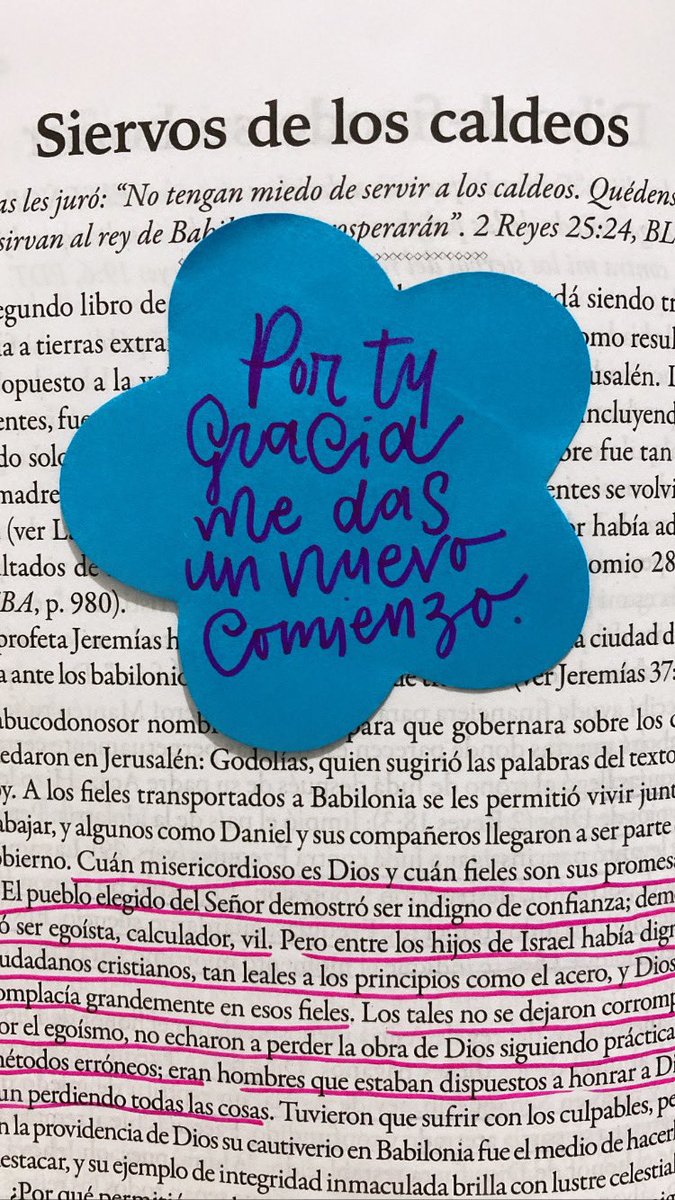 Siervos de los caldeos
as les juró: “No tengan miedo de servir a los caldeos. Quédens
sirvan al rey de Bab osperarán”. 2 Reyes 25:24, BL
Por tu
gracia
me das
un nuevo
comienzo.
egundo libro de dá siendo tr
a a tierras extra omo resul
opuesto a la usalén.
entes, fue incluyend
do solo bre fue tan
madre entes se volvi
(ver L r había ad
ltados de omio 28
BA, p. 980).
profeta Jeremías h a ciudad d
a ante los babilonio de (ver Jeremías 37:
abucodonosor nomb para que gobernara sobre los
edaron en Jerusalén: Godolías, quien sugirió las palabras del texto
y. A los fieles transportados a Babilonia se les permitió vivir junt
abajar, y algunos como Daniel y sus compañeros llegaron a ser parte
obierno. Cuán misericordioso es Dios y cuán fieles son sus promesa
El pueblo elegido del Señor demostró ser indigno de confianza; dem
ó ser egoísta, calculador, vil. Pero entre los hijos de Israel había dign
udadanos cristianos, tan leales a los principios como el acero, y Dios
omplacía grandemente en esos fieles. Los tales no se dejaron corromp
or el egoísmo, no echaron a perder la obra de Dios siguiendo práctica
métodos erróneos; eran hombres que estaban dispuestos a honrar a Di
un perdiendo todas las cosas. Tuvieron que sufrir con los culpables, pe
n la providencia de Dios su cautiverio en Babilonia fue el medio de hacerl
estacar, y su ejemplo de integridad inmaculada brilla con lustre celestial
¿Por qué permitió